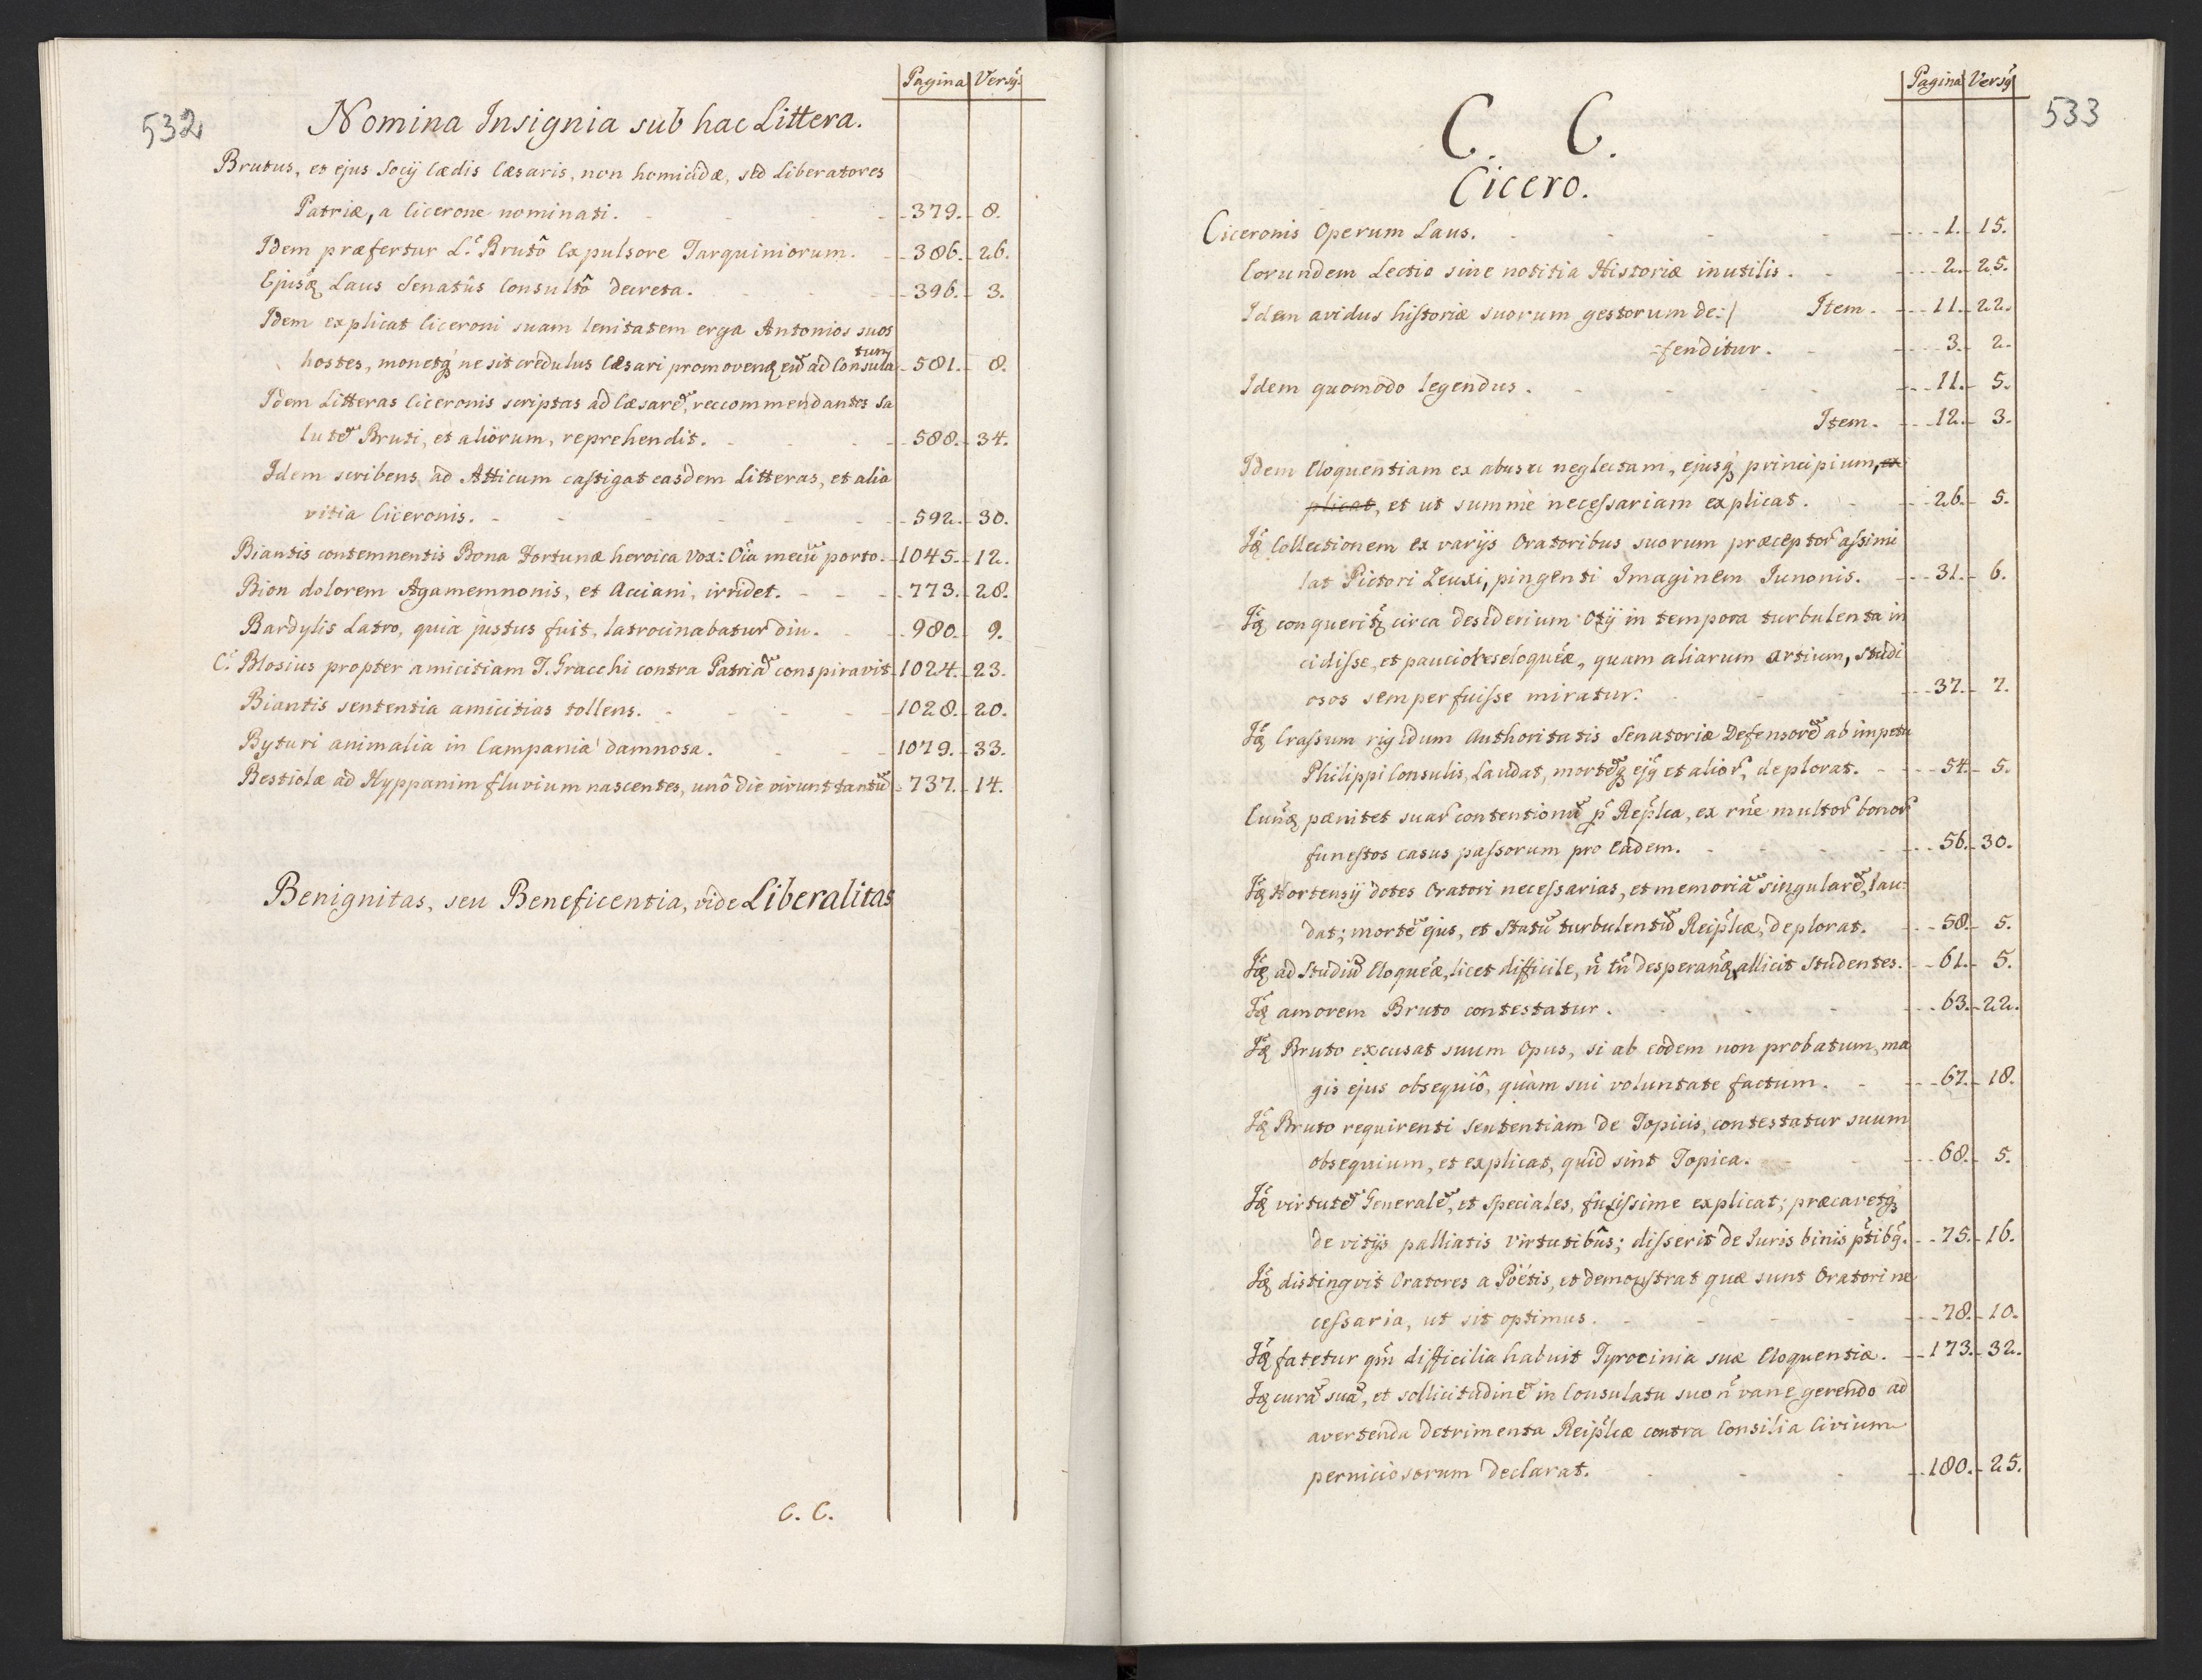 Pagina Versq̃
532
Nomina Insignia sub hac Littera.
Brutus, et ejus Socij cædis Cæsaris, non homicidæ, sed Liberatores
Patriæ, a Cicerone nominati. - - 379. - 8.
Idem præfertur L.̃ Brutô Expulsore Tarquiniorum. - - 386. - 26.
Ejusq̃ Laus Senatûs Consultô decreta. - - 396. - 3.
Idem explicat Ciceroni suam lenitatem erga Antonios suos
hostes, monetq́ ne sit credulus Cæsari promovenq̃ eũ ad Consula
tum - 581. - 8.
Idem Litteras Ciceronis scriptas ad Cæsarẽ, reccommendantes Sa
lutẽ Bruti, et aliörum, reprehendit. - - 588. - 34.
Idem scribens ad Atticum castigat easdem Litteras, et alia
vitia Ciceronis. - - 592. - 30.
Biantis contemnentis Bona Fortunæ heroica vox: Oĩa mecũ porto. - 1045. - 12.
Bion dolorem Agamemnonis, et Acciani, irridet. - - 773. - 28.
Bardylis Latro, quia justus fuit, latrocinabatur diu. - - 980. - 9.
C.̃ Blosius propter amicitiam T. Gracchi contra Patriã conspiravit - 1024. - 23.
Biantis sententia amicitias tollens. - - 1028. - 20.
Byturi animalia in Campaniâ damnosa. - - 1079. - 33.
Bestiolæ ad Hyppanim fluvium nascentes, unô die vivunt tantũ - 737. - 14.
Benignitas, seu Beneficentia, vide Liberalitas
C. C.
Pagina Versq̃
533
C. C.
Cicero.
Ciceronis Operum Laus. - - 1. - 15.
Eorundem Lectio sine notitia Historiæ inutilis. - - 2. - 25.
Idem avidus historiæ suorum gestorum de:/ Item. - - 11. - 22.
-fenditur. - - 3. - 2.
Idem quomodo legendus. - - 11. - 5.
Item. - - 12. - 3.
Idem Eloquentiam ex abusu neglectam, ejusq́ principium, ex
plicat, et ut summè necessariam explicat. - - 26. - 5.
Iq̃ Collectionem ex varijs Oratoribus suorum præceptor̃ assimi
lat Pictori Zeuxi, pingenti Imaginem Iunonis. - - 31. - 6.
Iq̃ conqueritq̃ circa desiderium Otij in tempora turbulenta in
cidisse, et pauciores eloquẽæ, quam aliarum artium, studi
osos semper fuisse miratur. - - 37. - 7.
Iq̃ Crassum rigidum Authoritatis Senatoriæ Defensorẽ ab impetu
Philippi Consulis, Laudat, mortẽq̃ ejq̃ et alior̃, deplorat. - - 54. - 5.
Eunq̃ pænitet suar̃ contentionũ p̃ Rep̃lca, ex rñe multor̃ bonor̃
funestos casus passorum pro Eâdem. - - 56. - 30.
Iq̃ Hortensij dotes Oratori necessarias, et memoriã singularẽ, lau:
dat; mortẽ ejus, et Statũ turbulentũ Reip̃lcæ, deplorat. - - 58. - 5.
Iq̃ ad Studiũ Eloquẽæ, licet difficile, ñ tñ desperanq̃, allicit Studentes. - - 61. - 5.
Iq̃ amorem Bruto contestatur. - - 63. - 22.
Iq̃ Bruto excusat suum Opus, si ab eodem non probatum, ma
gis ejus obsequiô, quàm sui voluntate factum. - - 67. - 18.
Iq̃ Bruto requirenti Sententiam de Topicis, contestatur suum
obsequium, et explicat, quid sint Topica. - - 68. - 5.
Iq̃ virtutẽ Generalẽ, et Speciales, fusissime explicat; præcavetq́
de vitijs palliatis Virtutibûs; disserit de Iuris binis p̃tibq̃. - - 75. - 16.
Iq̃ distingvit Oratores a Pöétis, et demonstrat quæ sunt Oratori ne
cessaria, ut sit optimus. - - 78. - 10.
Iq̃ fatetur qm̃ difficilia habuit Tyrocinia suæ Eloquentiæ. - - 173. - 32.
Iq̃ curã suã, et sollicitudinẽ in Consulatu suo ñ vane gerendo ad
avertenda detrimenta Reip̃lcæ contra Consilia Civium
perniciosorum declarat. - - 180. - 25.